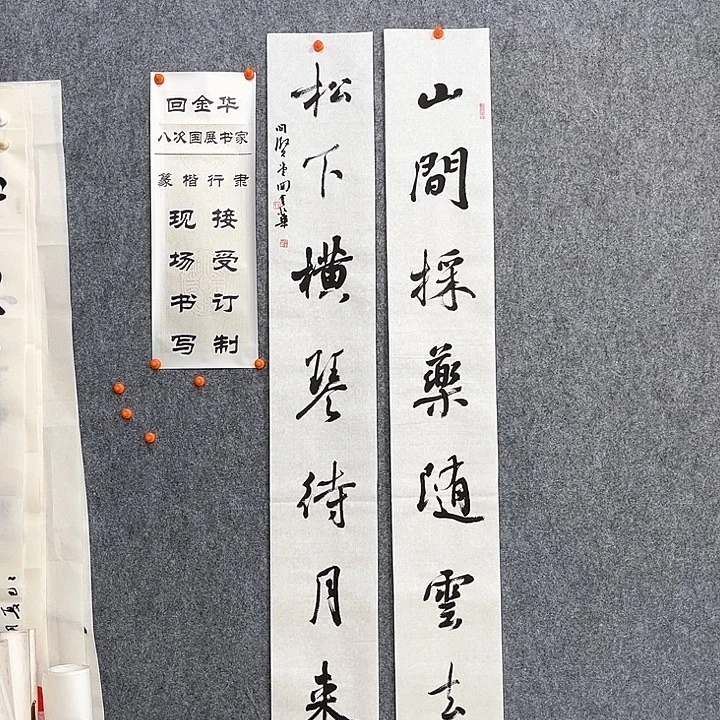 山間採藥随雲去
松下横琴待月来
問賢堂回金華
回金华
八次国展书家
篆楷行隶
接受订制
现场书写